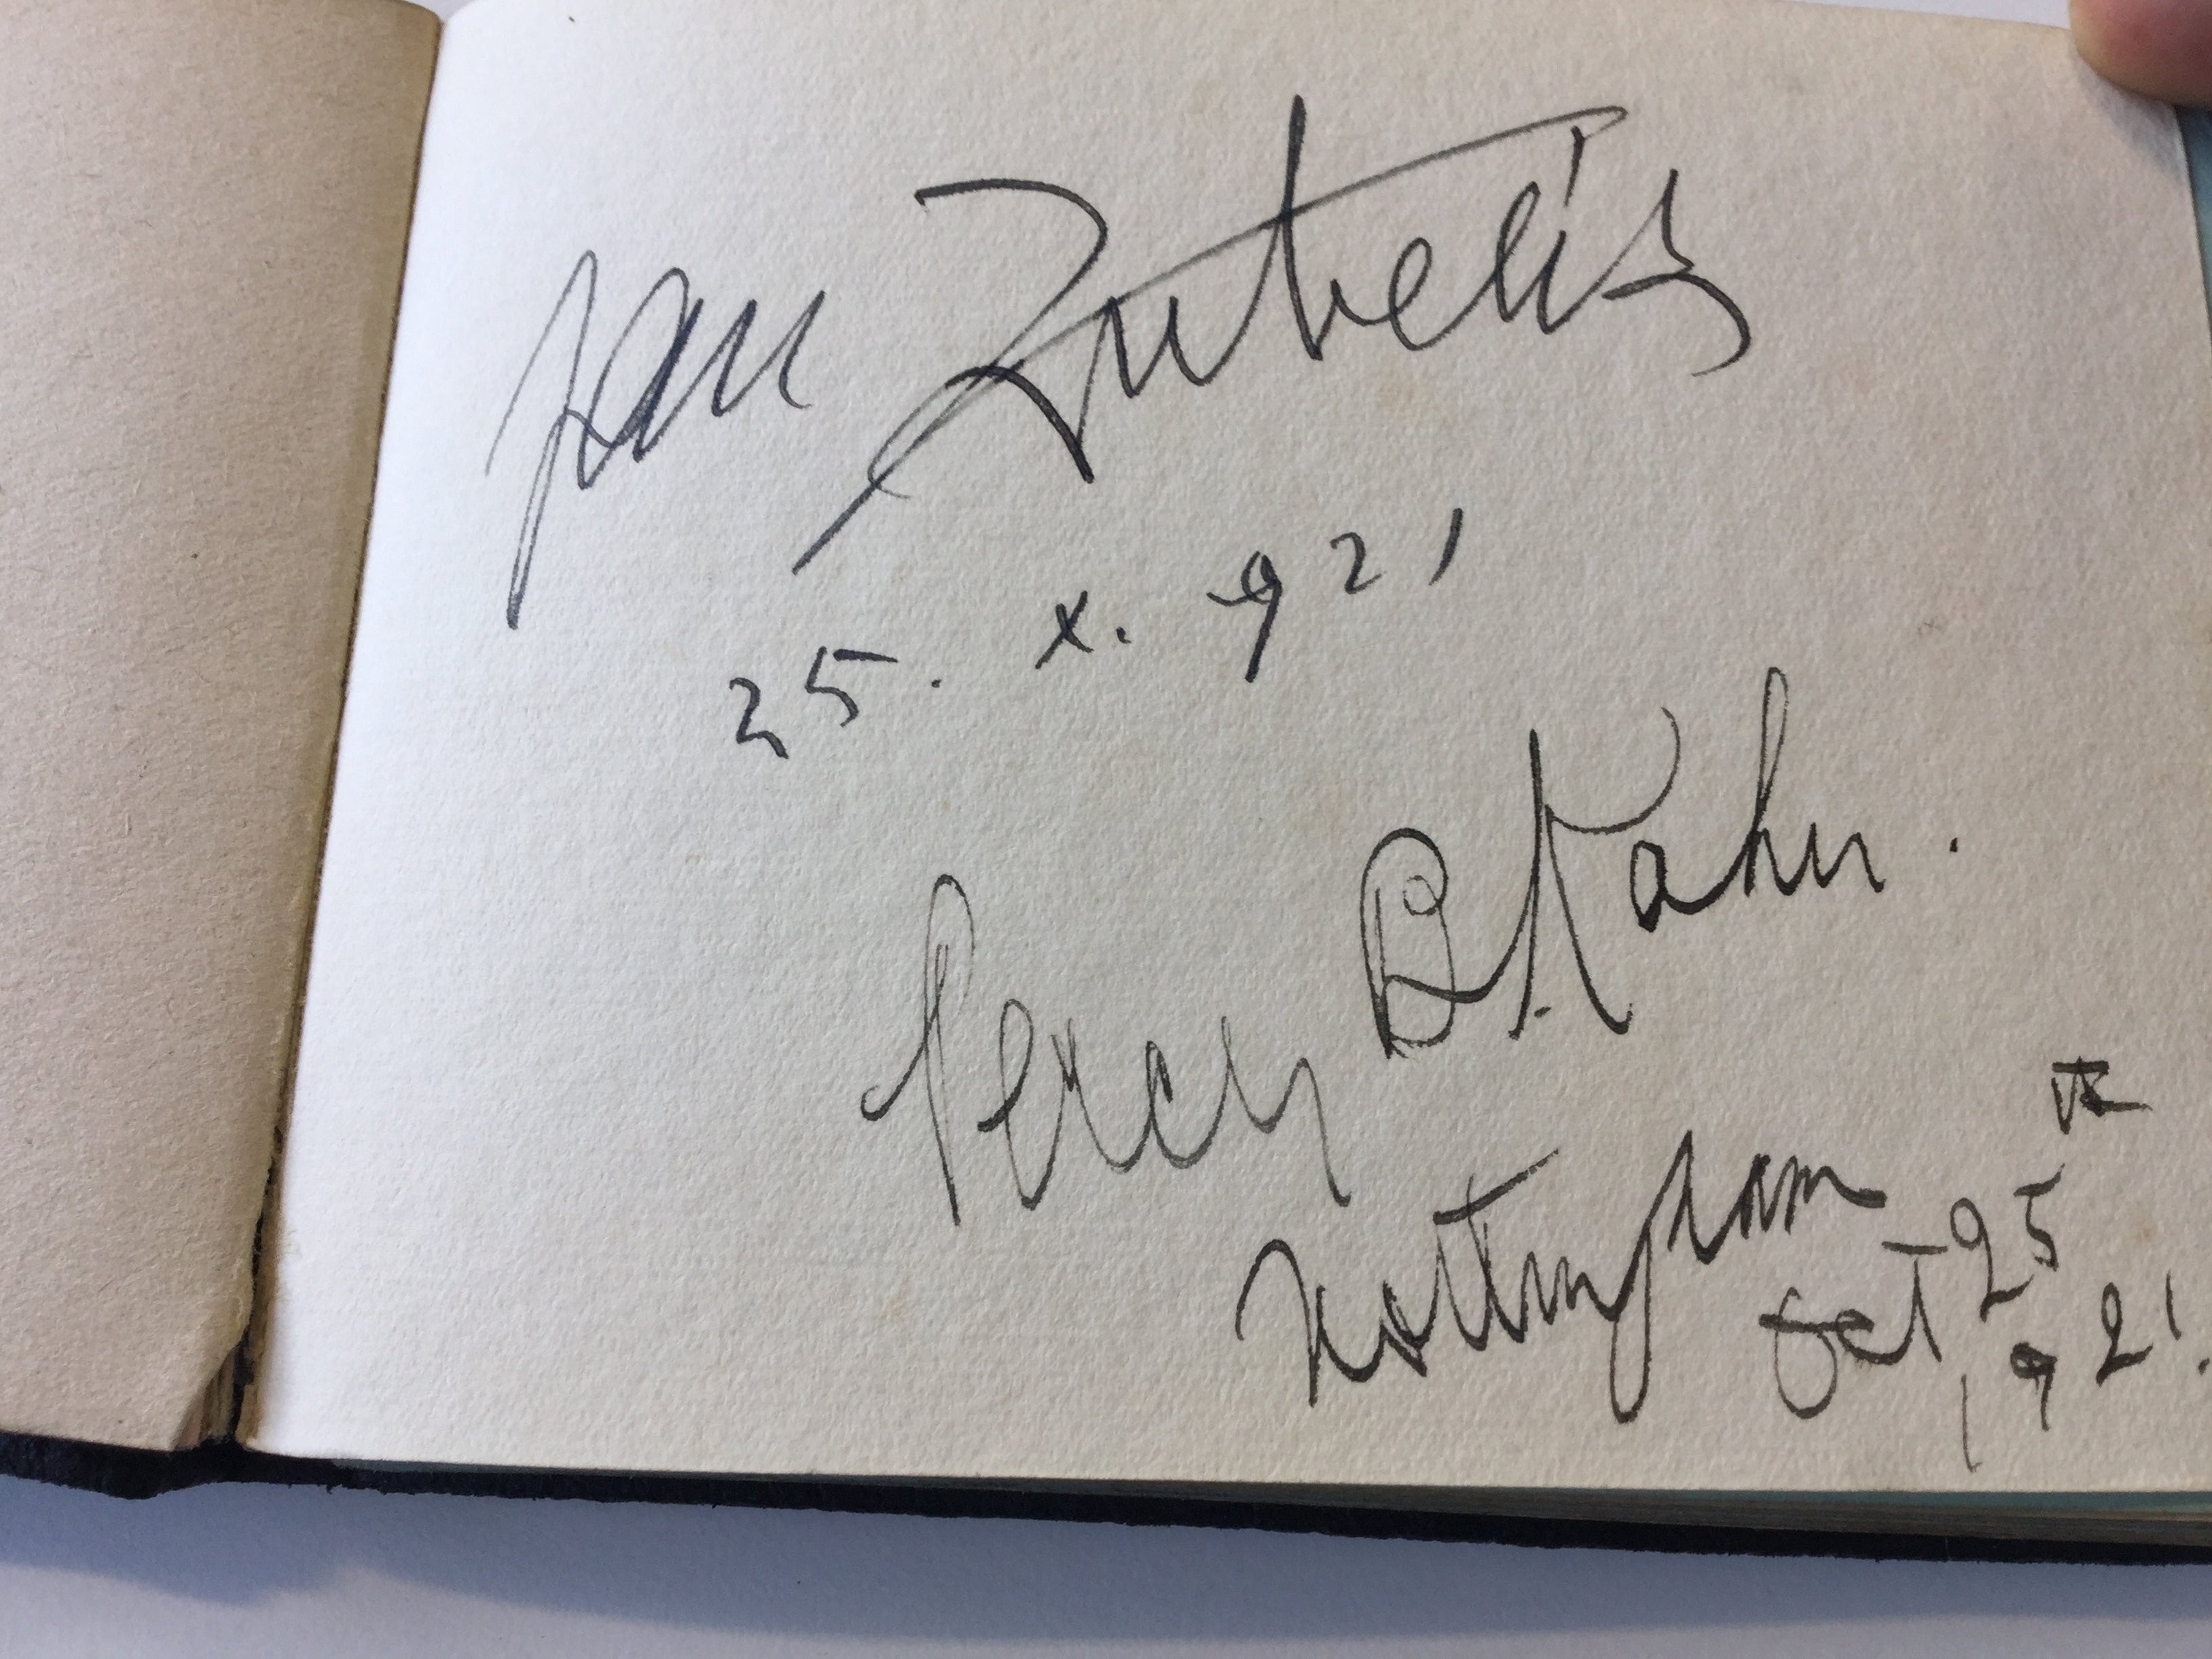 Jan Kubelík
25. X. 921
Percy B. Kahn.
Nottingham
Oct 25th
1921.